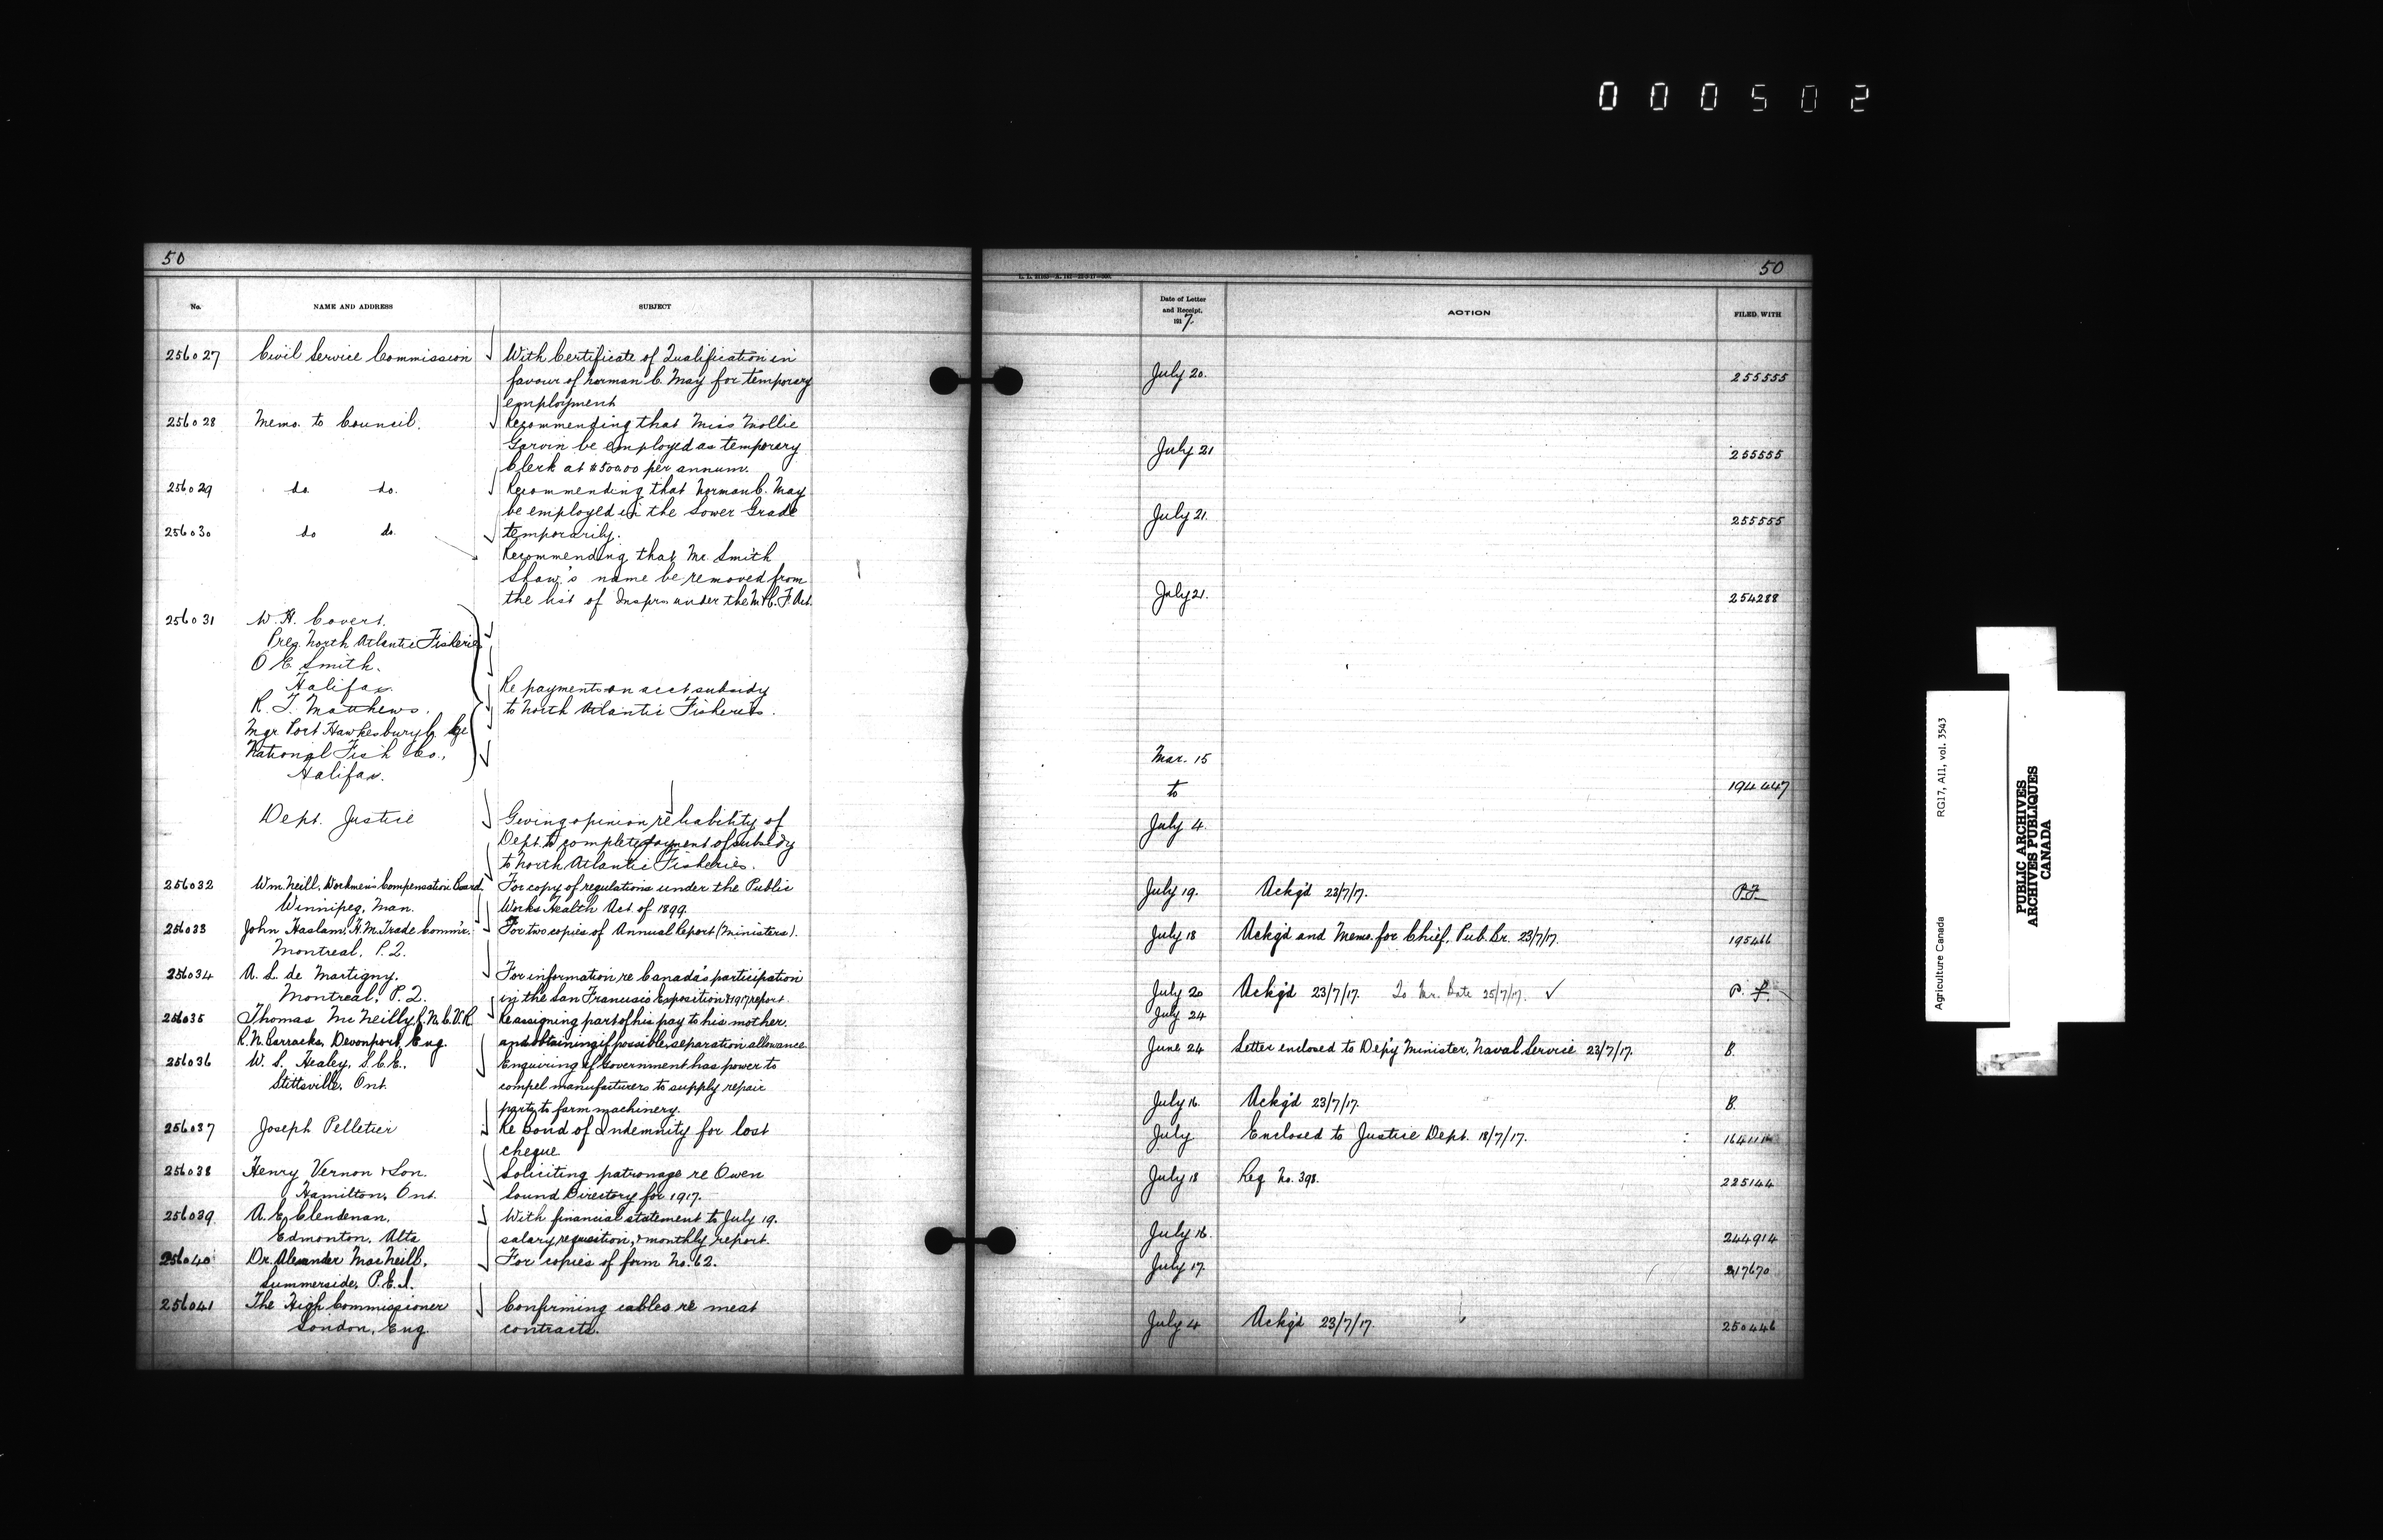 000502
50
No.
NAME AND ADDRESS
SUBJECT
256027
Civil Service Commission
With Certificate of Qualification in
favour of Norman C. May for temporary
employment
256028
Memo. to Council.
Recommending that Miss Mollie
Garvin be employed as temporary
Clerk at $500.00 per annum.
256029
do. do.
Recommending that Norman C. May
be employed in the Lower Grade
temporarily.
256030
do do.
Recommending that Mr. Smith
Shaw's name be removed from
the list of Insprs under the M & C. F. Act.
256031
W. H. Covert.
Preg. North Atlantic Fisheries
O E Smith.
Halifax.
R. J. Matthews.
Mgr Port Hawkesbury
National Fish Co.,
Halifax.
Re payments on acct subsidy
to North Atlantic Fisheries.
Dept. Justice
Giving opinion re liability of
Dept. to complete payment of subsidy
to North Atlantic Fisheries.
256032
Wm. Neill, Workmen's Compensation Board.
Winnipeg, Man.
For copy of regulations under the Public
Works Health Act. of 1899.
256033
John Haslam, H.M. Trade Commr.
Montreal, P.Q.
For two copies of Annual Report (Ministers).
256034
A. L. de Martigny.
Montreal, P.Q.
For information re Canada's participation
in the San Francisco Exposition & 1917 report.
256035
Thomas McNeilly, R.N.C.V.R.
R.N. Barracks, Devonport, Eng.
Re assigning part of his pay to his mother.
and obtaining if possible, separation allowance.
256036
W. S. Healey, S.C.E.,
Stittsville, Ont.
Enquiring if Government has power to
compel manufacturers to supply repair
parts to farm machinery.
256037
Joseph Pelletier
Re Bond of Indemnity for lost
cheque.
256038
Henry Vernon & Son.
Hamilton, Ont.
Soliciting patronage re Owen
Sound Directory for 1917.
256039
A. E. Clendenan,
Edmonton, Alta
With financial statement to July 19.
salary requisition, & monthly report.
256040
Dr. Alexander MacNeill,
Summerside, P.E.I.
For copies of form No. 62.
256041
The High Commissioner
London, Eng.
Confirming cables re meat
contracts.
50
Date of Letter
and Receipt,
191 7.
ACTION
FILED WITH
July 20.
255555
July 21
255555
July 21.
255555
July 21.
254288
Mar. 15
to
194447
July 4.
July 19. Ackg'd 23/7/17. P.F.
July 18 Ackg'd and Memo. for Chief, Pub. Br. 23/7/17. 195466
July 20 Ackg'd 23/7/17. To Mr. 25/7/17. ✓ P. F.
July 24
June 24 Letter enclosed to Dep'y Minister, Naval Service 23/7/17. B.
July 16 Ackg'd 23/7/17. B.
July Enclosed to Justice Dept. 18/7/17.
July 18 Req No. 398. 225144
July 16. 244914
July 17 217670
July 4 Ackg'd 23/7/17. 250446
Agriculture Canada
RG17, AI1, vol. 3543
PUBLIC ARCHIVES
ARCHIVES PUBLIQUES
CANADA